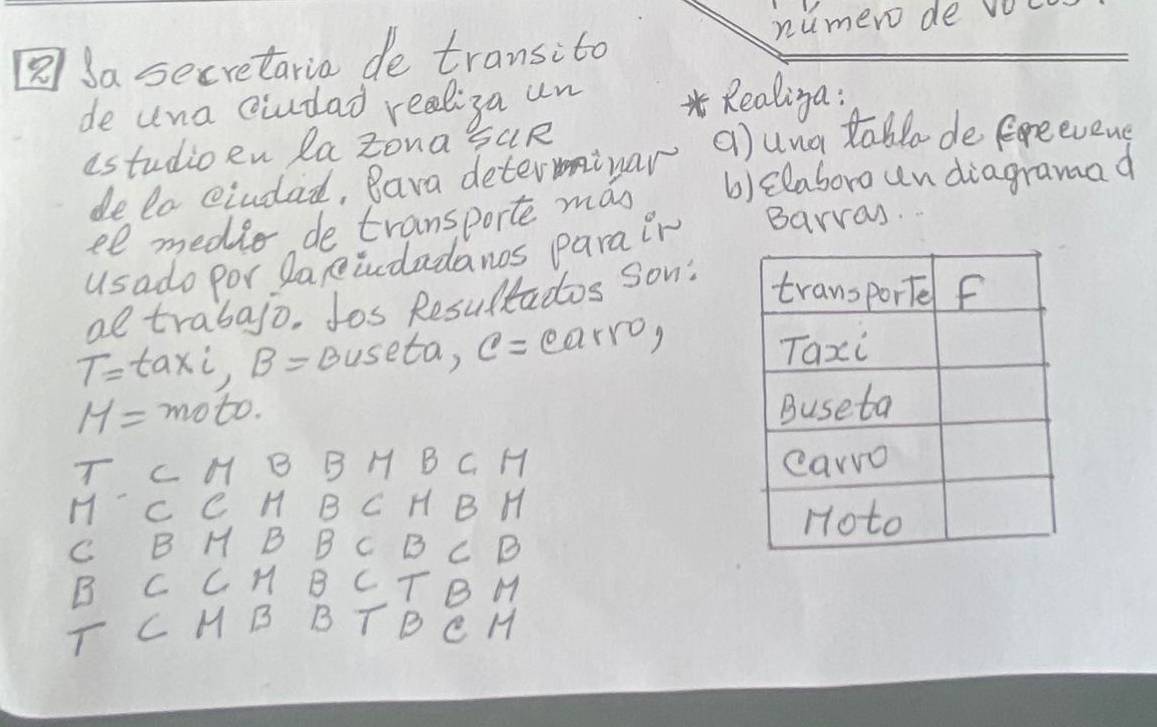 número de
2 La secretaria de transito
de una ciudad realiza un
estudio en la zona sur
de la ciudad. Para determinar
el medio de transporte más
usado por la ciudadanos para ir
al trabajo. Los Resultados son:
T=taxi, B=Buseta, C=carro,
M=moto.
T C M B B M B C M
M C C M B C M B M
C B M B B C B C B
B C C M B C T B M
T C M B B T B C M
* Realiza:
a) una tabla de
b) Elabora un diagrama d
Barras..
transporte F
Taxi
Buseta
Carro
Moto